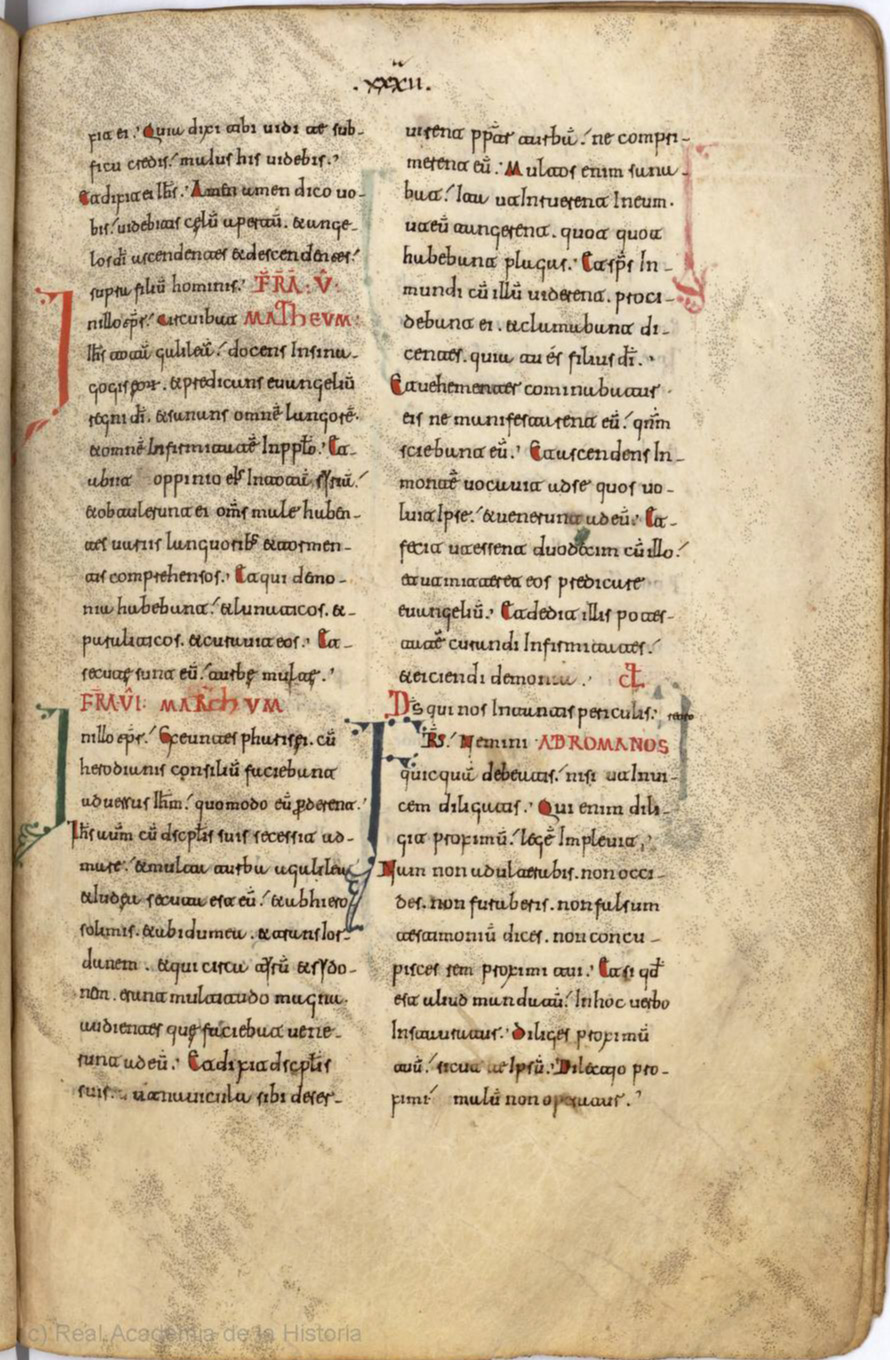 .xxxii.
xit ei. Quia dixi tibi vidi te sub-
ficu credis. maius his videbis.
Et dixit ei Ihs. Amen amen dico vo-
bis. videbitis celū apertū. & ange-
los di ascendentes & descendentes.
supra filiū hominis. FRA. V.
In illo tprs. circuibat MATHEVM.
Ihs totā galileā. docens In sina-
gogis eor. & predicans evangeliū
regni di. & sanans omnē langorē.
& omnē Infirmitatē In pplo. Et
abiit oppinio eīs In totā syriā.
& obtulerunt ei oms male haben-
tes variis languoribs & tormen-
tis comprehensos. Et qui demo-
nia habebant. & lunaticos. &
paraliticos. & curavit eos. Et
secute sunt eū. turbe multe.
FRA. VI. MARCHVM
In illo tprs. Exeuntes pharisei. cū
herodianis consiliū faciebant
adversus Ihm. quomodo eū pderent.
Ihs autm cū dscplis suis secessit ad
mare. & multa turba a galilea
& iudea secuta est eū. & ab hiero-
solimis. & ab idumea. & trans Ior-
danem. & qui circa tyrū & sydo-
nem. erunt multitudo magna.
audientes que faciebat vene-
runt ad eū. Et dixit dscplis
suis. ut navicula sibi deser-
virent pptr turbā. ne compri-
merent eū. Multos enim sana-
bat. Ita ut Inruerent In eum.
ut eū tangerent. quot quot
habebant plagas. Et sps In-
mundi cū illū viderent. proci-
debant ei. & clamabant di-
centes. quia tu és filius di.
Et vehementer cominabatur
eis ne manifestarent eū. qnm
sciebant eū. Et ascendens In-
montē vocavit ad se quos vo-
luit Ipse. & venerunt ad eū. Et
fecit ut essent duodecim cū illo.
et ut mitteret eos predicare
evangeliū. Et dedit illis potes-
tatē curandi Infirmitates.
& eiciendi demonia. CL
Ds qui nos In tantis periculis.
FRS. Nemini AD ROMANOS
quicquā debeatis. nisi ut Invi-
cem diligatis. Qui enim dili-
git proximū. legē Implevit.
Nam non adulterabis. non occi-
des. non furaberis. non falsum
testimoniū dices. non concu-
pisces rem proximi tui. Et si qd
est aliud mandatū. In hoc verbo
Instauratur. Diliges proximū
tuū. sicut te Ipsū. Dilectio pro-
ximi malū non operatur.
(c) Real Academia de la Historia